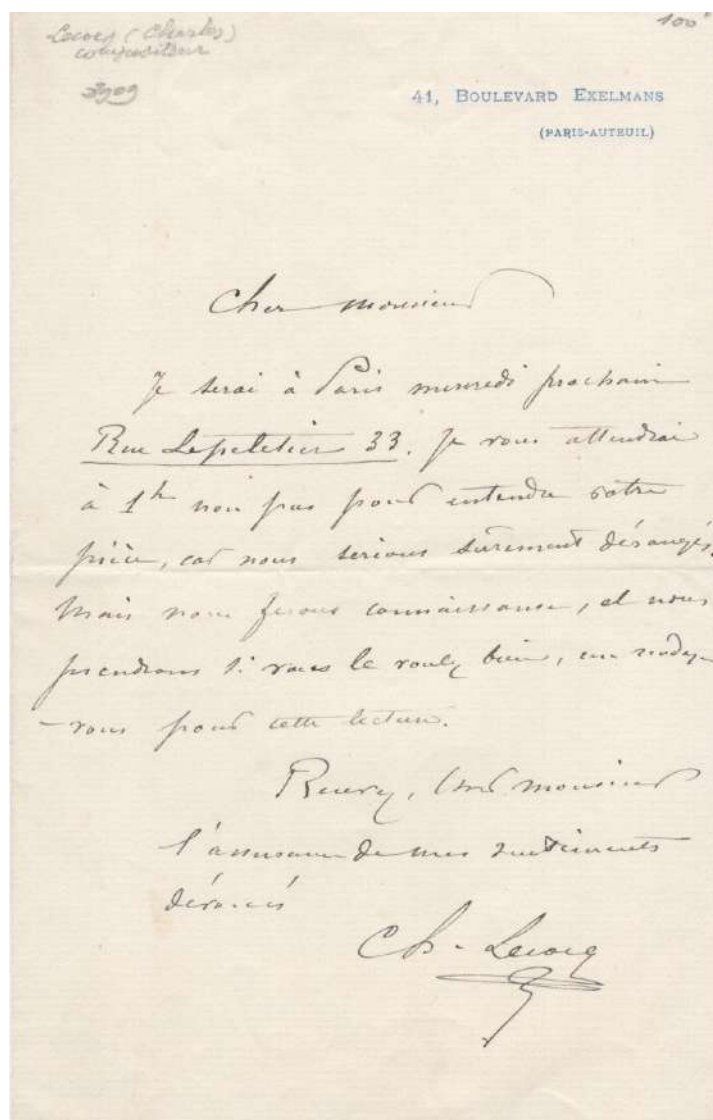 Lecocq (Charles)
compositeur
100
41, BOULEVARD EXELMANS
(PARIS-AUTEUIL)
Cher monsieur
Je serai à Paris mercredi prochain
Rue Lepeletier 33. Je vous attendrai
à 1h non pas pour entendre votre
pièce, car nous serions sûrement dérangés.
Mais nous ferons connaissance, et nous
prendrons si vous le voulez bien, un rendez
-vous pour cette lecture.
Recevez, cher monsieur
l'assurance de mes sentiments
dévoués
Ch. Lecocq